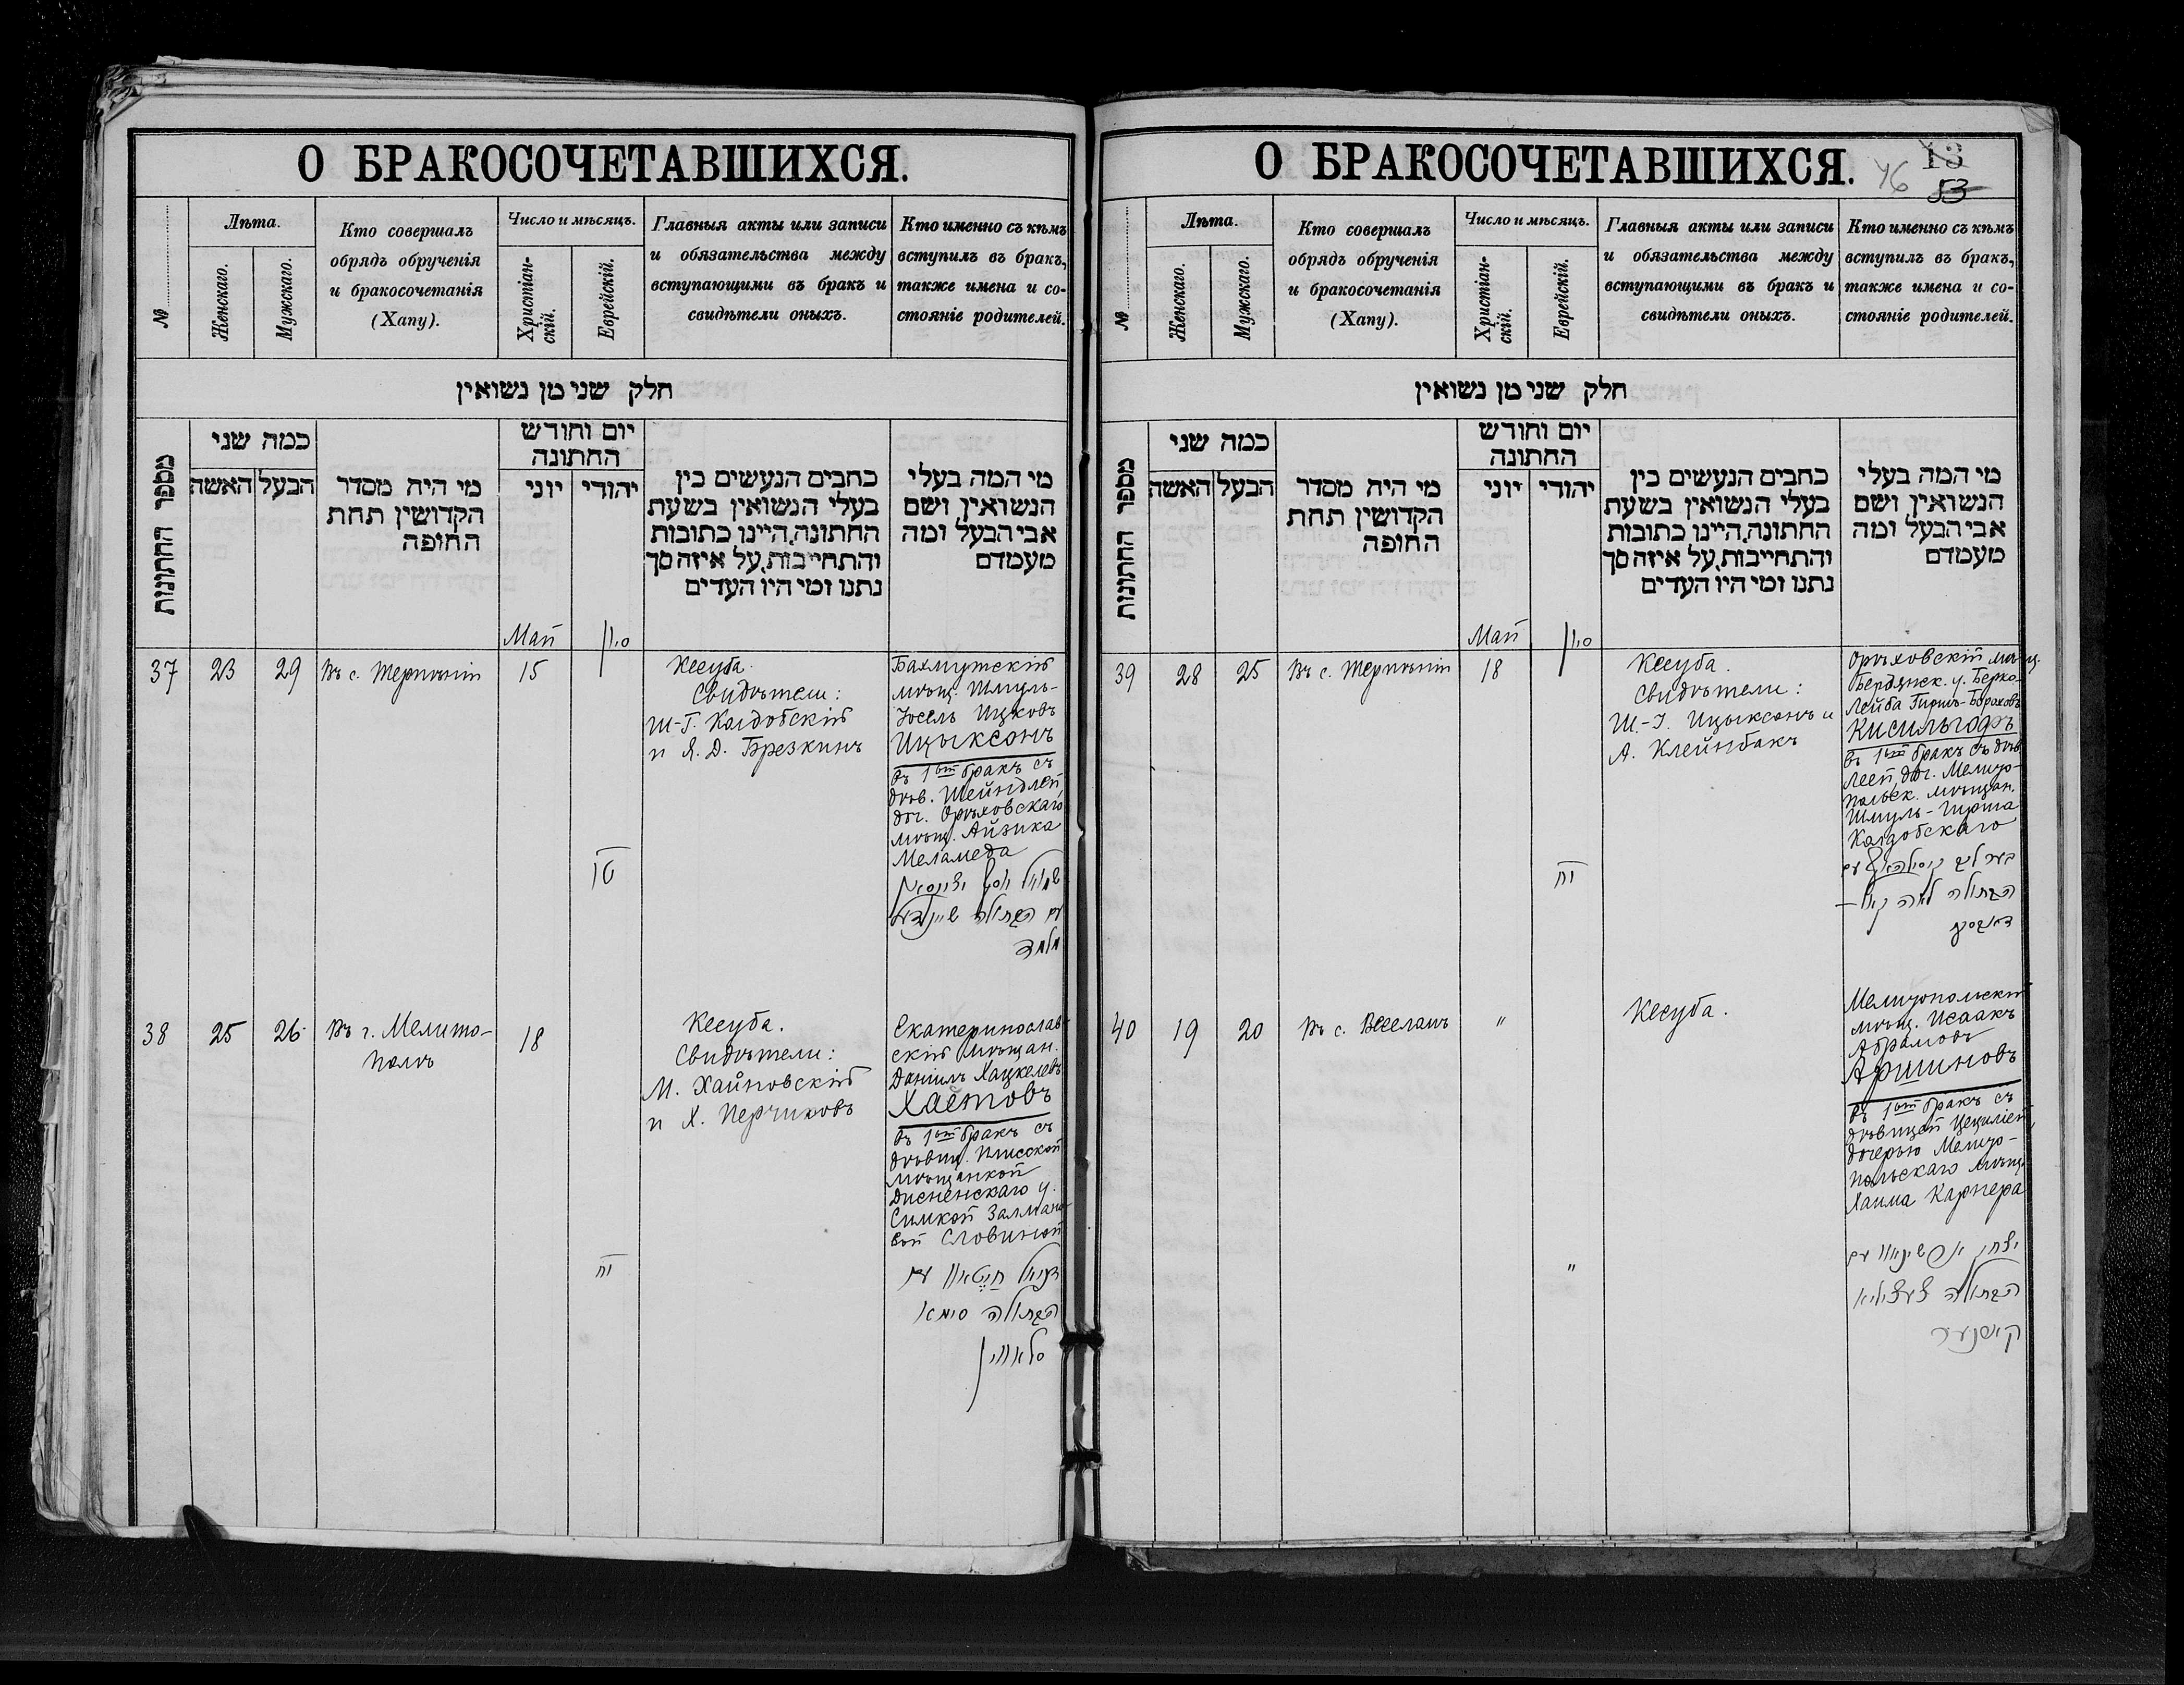 О БРАКОСОЧЕТАВШИХСЯ.
№
Лѣта.
Женскаго.
Мужскаго.
Кто совершалъ
обрядъ обрученія
и бракосочетанія
(Хапу).
Число и мѣсяцъ.
Христіан-
скій.
Еврейскій.
Главныя акты или записи
и обязательства между
вступающими въ бракъ и
свидѣтели оныхъ.
Кто именно съ кѣмъ
вступилъ въ бракъ,
также имена и со-
стояніе родителей.
חלק שני מן נשואין
מספר החתונות
כמה שני
האשה
הבעל
מי היה מסדר
הקדושין תחת
החופה
יום וחודש
החתונה
יוני
יהודי
כתבים הנעשים בין
בעלי הנשואין בשעת
החתונה, היינו כתובות
והתחייבות, על איזה סך
נתנו ומי היו העדים
מי המה בעלי
הנשואין ושם
אבי הבעל ומה
מעמדם
Май
סיון
37
23
29
Въ с. Терпѣніи
15
טו
Кесуба.
Свидѣтели:
Ш-Г. Колдобскій
и Я. Д. Брезкинъ
Бахмутскій
мѣщ. Шмуль-
Іосель Ицковъ
Ицыксонъ
въ 1ый бракъ съ
дѣв. Шейндлей,
доч. Орѣховскаго
мѣщ. Айзика
Меламеда
שמואל יוסף איציקסאן
עם הבתולה שיינדיל
מלמד
38
25
26
Въ г. Мелито-
полѣ
18
יח
Кесуба.
Свидѣтели:
М. Хайновскій
и Х. Перчиковъ
Екатеринослав-
скій мѣщан.
Даніилъ Хацкелевъ
Хаётовъ
въ 1ый бракъ съ
дѣвиц. Плисской
мѣщанкой
Дисненскаго у.
Симкой Залмано-
вой Словиной
דניאל חייטאוו עם
הבתולה סימא
סלאווין
О БРАКОСОЧЕТАВШИХСЯ.
46
13
53
№
Лѣта.
Женскаго.
Мужскаго.
Кто совершалъ
обрядъ обрученія
и бракосочетанія
(Хапу).
Число и мѣсяцъ.
Христіан-
скій.
Еврейскій.
Главныя акты или записи
и обязательства между
вступающими въ бракъ и
свидѣтели оныхъ.
Кто именно съ кѣмъ
вступилъ въ бракъ,
также имена и со-
стояніе родителей.
חלק שני מן נשואין
מספר החתונות
כמה שני
האשה
הבעל
מי היה מסדר
הקדושין תחת
החופה
יום וחודש
החתונה
יוני
יהודי
כתבים הנעשים בין
בעלי הנשואין בשעת
החתונה, היינו כתובות
והתחייבות, על איזה סך
נתנו ומי היו העדים
מי המה בעלי
הנשואין ושם
אבי הבעל ומה
מעמדם
Май
סיון
39
28
25
Въ с. Терпѣніи
18
יח
Кесуба.
Свидѣтели:
Ш-І. Ицыксонъ и
А. Клейнбакъ
Орѣховскій мѣщ.
Бердянск. у. Берко-
Лейба Гиршъ-Бораховъ
Кисильгофъ
въ 1ый бракъ съ дѣв.
Леей, доч. Мелито-
польск. мѣщан.
Шмуль-Гирша
Колдобскаго
הבתולה לאה קאל-
דאבסקי
40
19
20
Въ с. Веселомъ
"
"
Кесуба.
Мелитопольскій
мѣщ. Исаакъ
Абрамовъ
Аршиновъ
въ 1ый бракъ съ
дѣвицей Цециліей,
дочерью Мелито-
польскаго мѣщ.
Хаима Карнера
יצחק ארשינאוו עם
הבתולה צעציליא
קארנער